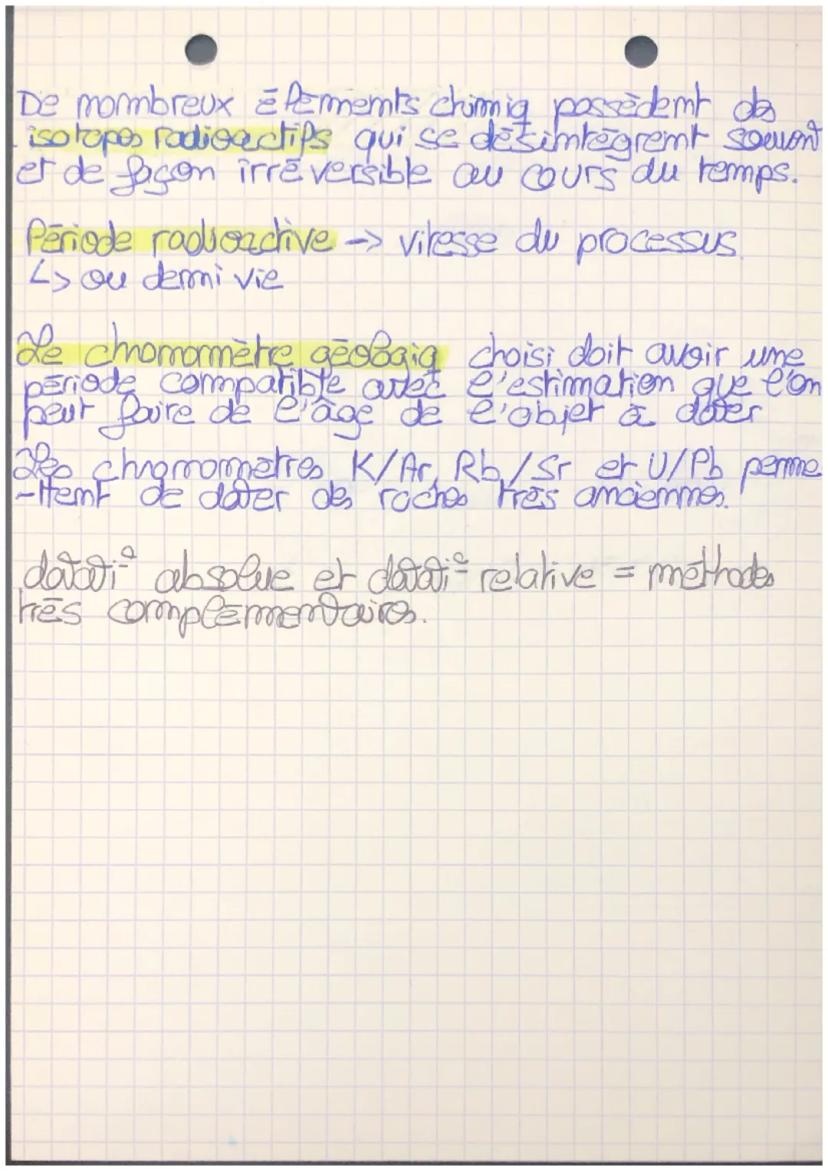 De nombreux éléments chimiq possèdent des
isotopes radioactifs qui se désintègrent souvent
et de façon irréversible au cours du temps.
Période radioactive -> vitesse du processus
↳ ou demi vie
Le chronomètre géologiq choisi doit avoir une
période compatible avec l'estimation que l'on
peut faire de l'âge de l'objet à dater
Les chronomètres K/Ar, Rb/Sr et U/Pb perme
-ttent de dater des roches très anciennes.
datati° absolue et datati° relative = méthodes
très complémentaires.